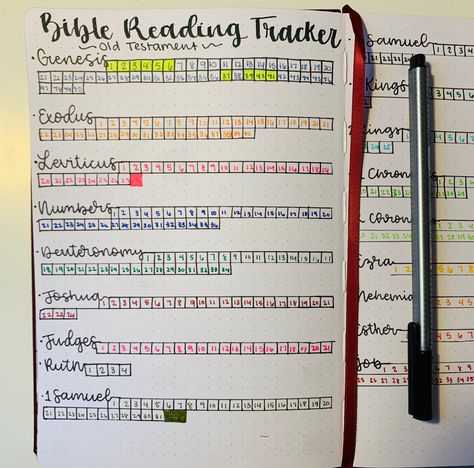 Bible Reading Tracker
~Old Testament~
Genesis 1 2 3 4 5 6 7 8 9 10 11 12 13 14 15 16 17 18 19 20
21 22 23 24 25 26 27 28 29 30 31 32 33 34 35 36 37 38 39 40 41 42 43 44 45 46
47 48 49 50
Exodus 1 2 3 4 5 6 7 8 9 10 11 12 13 14 15 16 17 18 19 20
21 22 23 24 25 26 27 28 29 30 31 32 33 34 35 36 37 38 39 40
Leviticus 1 2 3 4 5 6 7 8 9 10 11 12 13 14 15 16 17 18 19
20 21 22 23 24 25 26 27
Numbers 1 2 3 4 5 6 7 8 9 10 11 12 13 14 15 16 17 18 19 20
21 22 23 24 25 26 27 28 29 30 31 32 33 34 35 36
Deuteronomy 1 2 3 4 5 6 7 8 9 10 11 12 13 14 15 16 17
18 19 20 21 22 23 24 25 26 27 28 29 30 31 32 33 34
Joshua 1 2 3 4 5 6 7 8 9 10 11 12 13 14 15 16 17 18 19 20 21
22 23 24
Judges 1 2 3 4 5 6 7 8 9 10 11 12 13 14 15 16 17 18 19 20 21
Ruth 1 2 3 4
1 Samuel 1 2 3 4 5 6 7 8 9 10 11 12 13 14 15 16 17 18 19 20
21 22 23 24 25 26 27 28 29 30 31
Samuel 1 2 3 4
Kings
ings
Chron
Chron
Ezra
Nehemia
Esther
Job